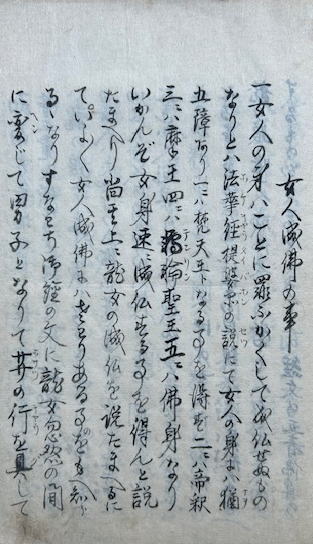 女人成佛の事
一女人の身ハことに罪ふかくして成仏せぬもの
なりとハ法華経提婆品の説にて女人の身にハ猶
五障あり一ニハ梵天王となる事を得ず二ニハ帝釈
三ニハ魔王四ニハ轉輪聖王五ニハ佛身なり
いかんぞ女身速に成仏する事を得んと説
たまへり尚其上に龍女の成仏を説たまへるに
てよく女人成佛にハさとりあるをも知
るゝなりすなわち御経の文に龍女忽然の間
に変じて男子となりて菩の行を具して